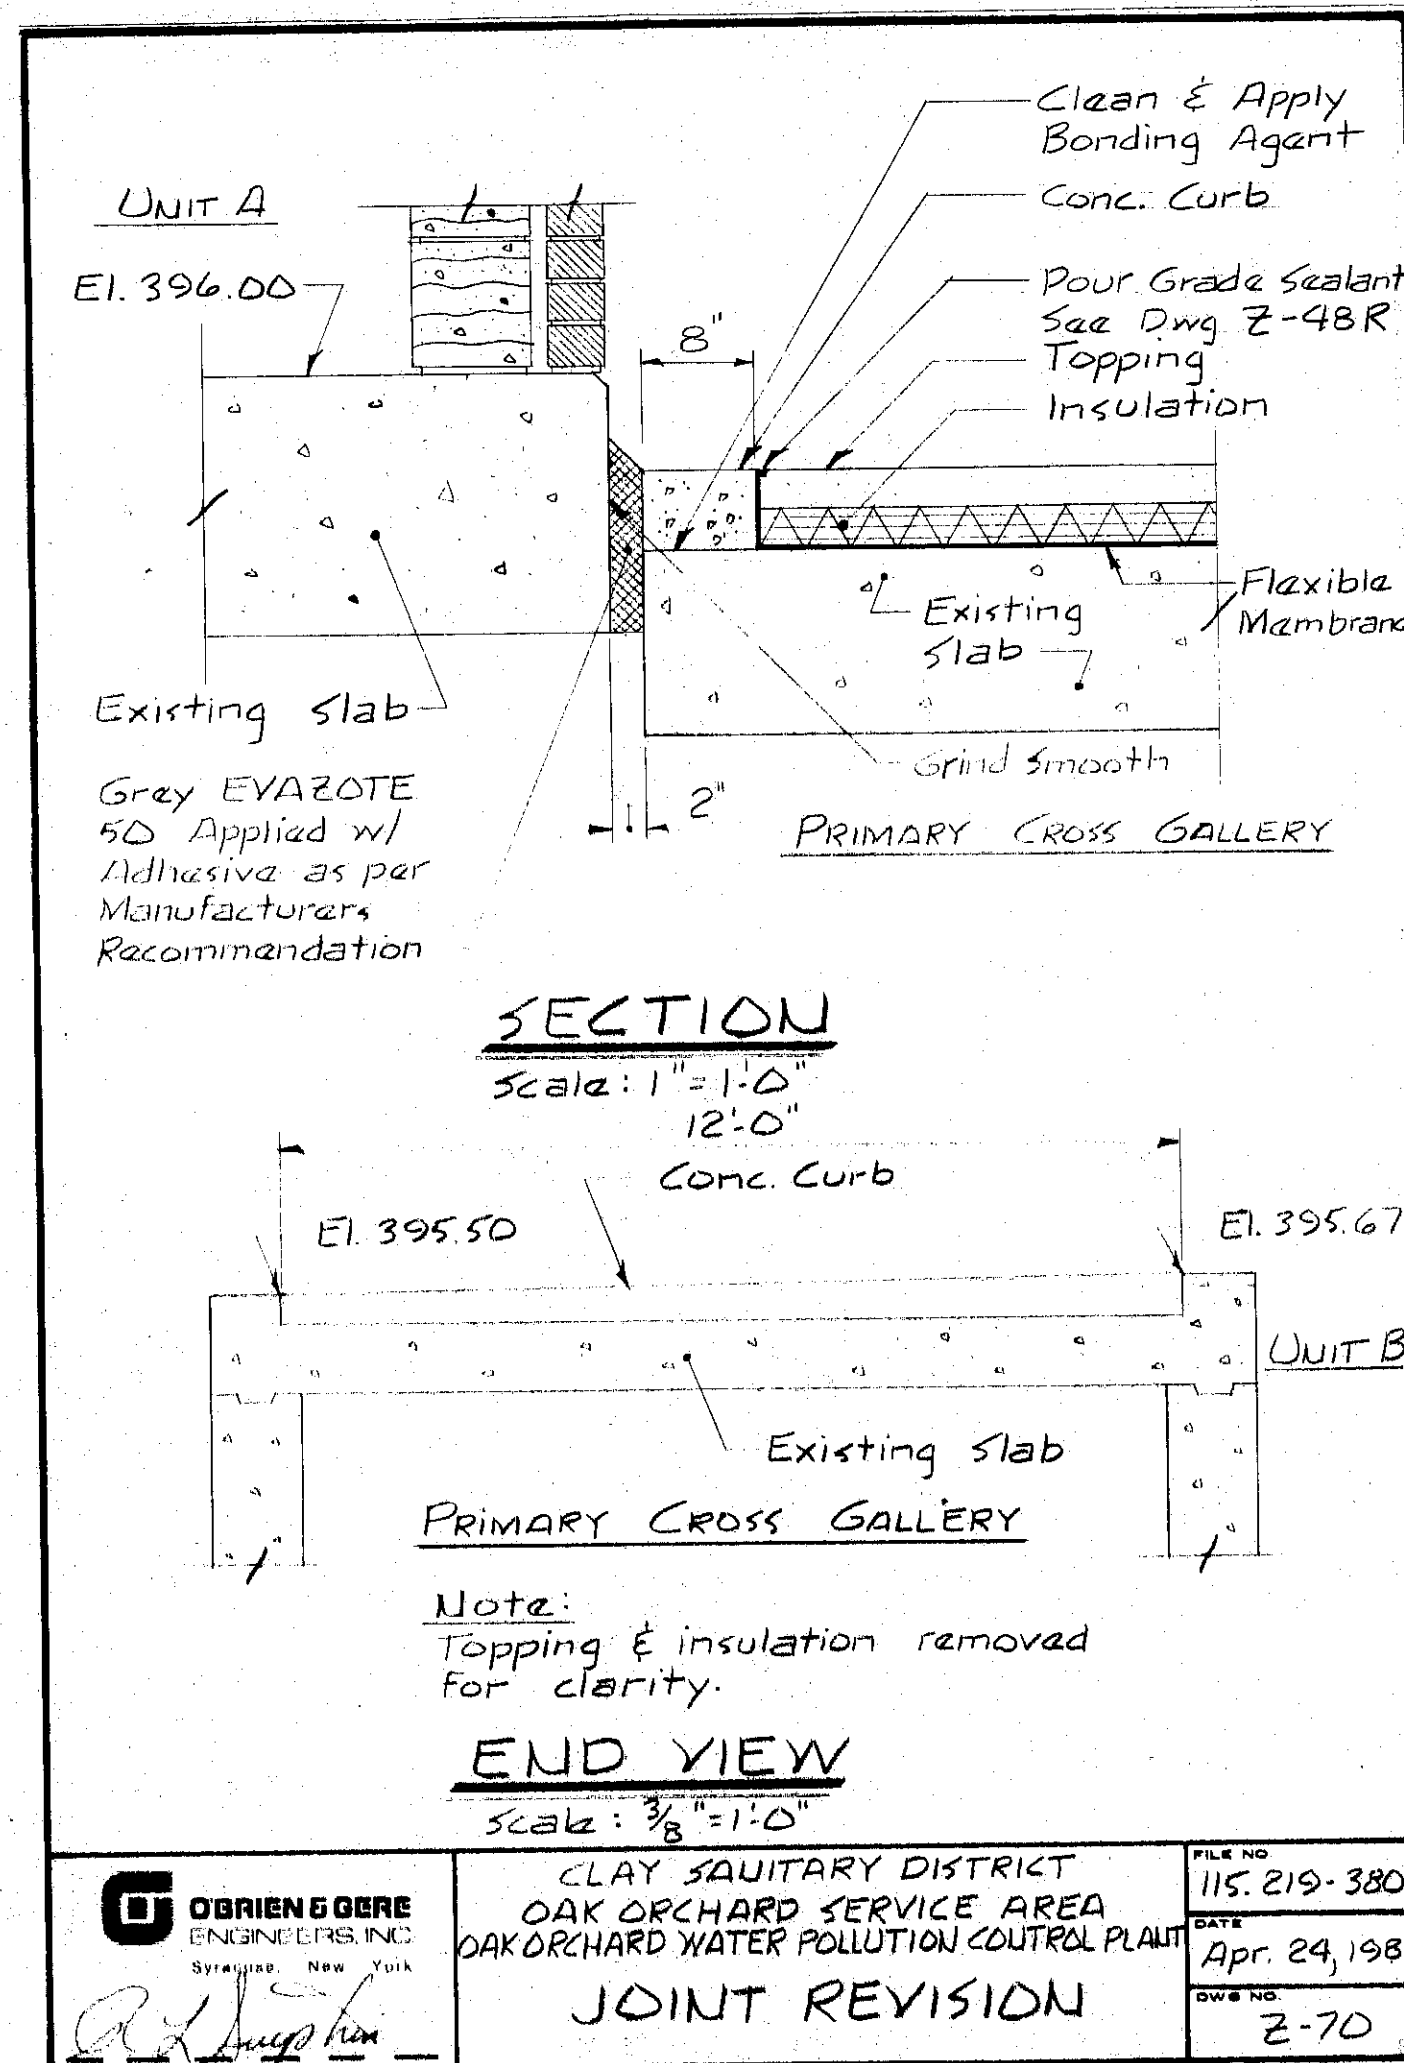 Clean & Apply
Bonding Agent
UNIT A
Conc. Curb
El. 396.00
Pour Grade Sealant
See Dwg Z-48R
8"
Topping
Insulation
Flexible
Existing
Slab
Existing Slab
Grind Smooth
Grey EVAZOTE
50 Applied w/
Adhesive as per
Manufacturers
Recommendation
2"
PRIMARY CROSS GALLERY
SECTION
Scale: 1"=1'-0"
12'-0"
Conc. Curb
El. 395.50
El. 395.67
UNIT B
Existing Slab
PRIMARY CROSS GALLERY
Note:
Topping & insulation removed
for clarity.
END VIEW
Scale: 3/8"=1'-0"
O'BRIEN & GERE
ENGINEERS, INC.
Syracuse, New York
CLAY SANITARY DISTRICT
OAK ORCHARD SERVICE AREA
OAK ORCHARD WATER POLLUTION CONTROL PLANT
JOINT REVISION
FILE NO.
115.219-380
DATE
Apr. 24, 198
DWG NO.
Z-70